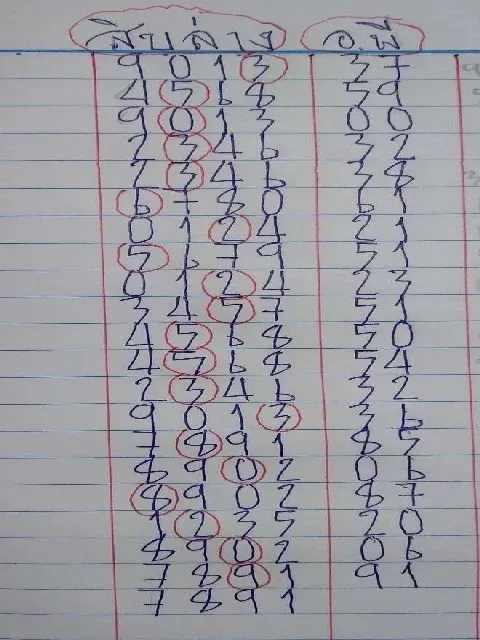 สิบล่าง อ.ผี
9 0 1 3 3 7
4 5 6 8 5 9
9 0 1 3 0 0
2 3 4 6 3 2
2 3 4 6 3 8
6 7 8 0 6 1
0 1 2 4 2 1
5 6 7 9 5 1
0 1 2 4 2 3
3 4 5 7 5 1
4 5 6 8 5 0
4 5 6 8 5 4
2 3 4 6 3 2
9 0 1 3 3 6
7 8 9 1 8 5
8 9 0 2 0 6
8 9 0 2 8 7
1 2 3 5 2 0
8 9 0 2 0 6
7 8 9 1 9 1
7 8 9 1